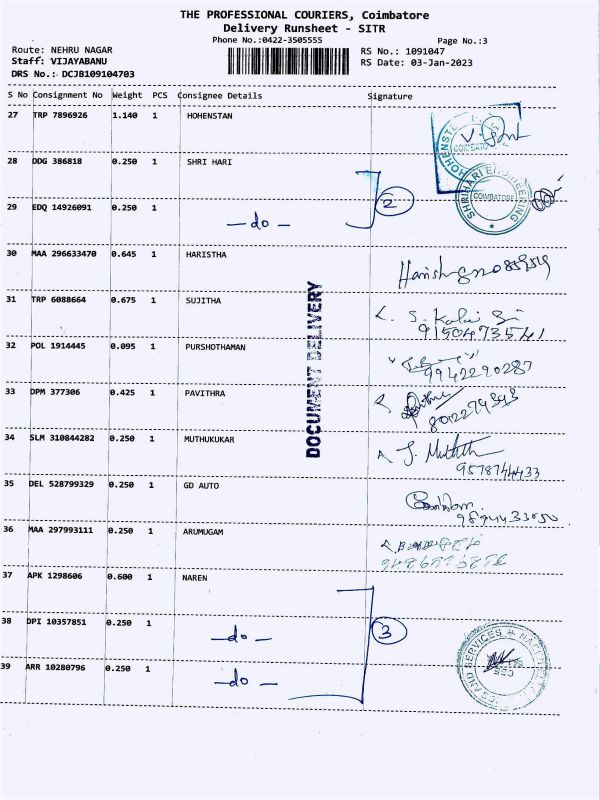 THE PROFESSIONAL COURIERS, Coimbatore
Delivery Runsheet - SITR
Phone No.:0422-3505555
Page No.:3
Route: NEHRU NAGAR
RS No.: 1091047
Staff: VIJAYABANU
RS Date: 03-Jan-2023
DRS No.: DCJB109104703
S No Consignment No Weight PCS Consignee Details Signature
27 TRP 7896926 1.140 1 HOHENSTAN
28 DDG 386818 0.250 1 SHRI HARI
SHRIHARI ENGINEERING
COIMBATORE
2
29 EDQ 14926091 0.250 1 -do-
30 MAA 296633470 0.645 1 HARISTHA
31 TRP 6088664 0.675 1 SUJITHA
9150473541
32 POL 1914445 0.095 1 PURSHOTHAMAN
9942290287
33 DPM 377306 0.425 1 PAVITHRA
34 SLM 310844282 0.250 1 MUTHUKUKAR
9578744433
35 DEL 528799329 0.250 1 GD AUTO
36 MAA 297993111 0.250 1 ARUMUGAM
37 APK 1298606 0.600 1 NAREN
38 DPI 10357851 0.250 1 -do-
3
39 ARR 10280796 0.250 1 -do-
DOCUMENT DELIVERY